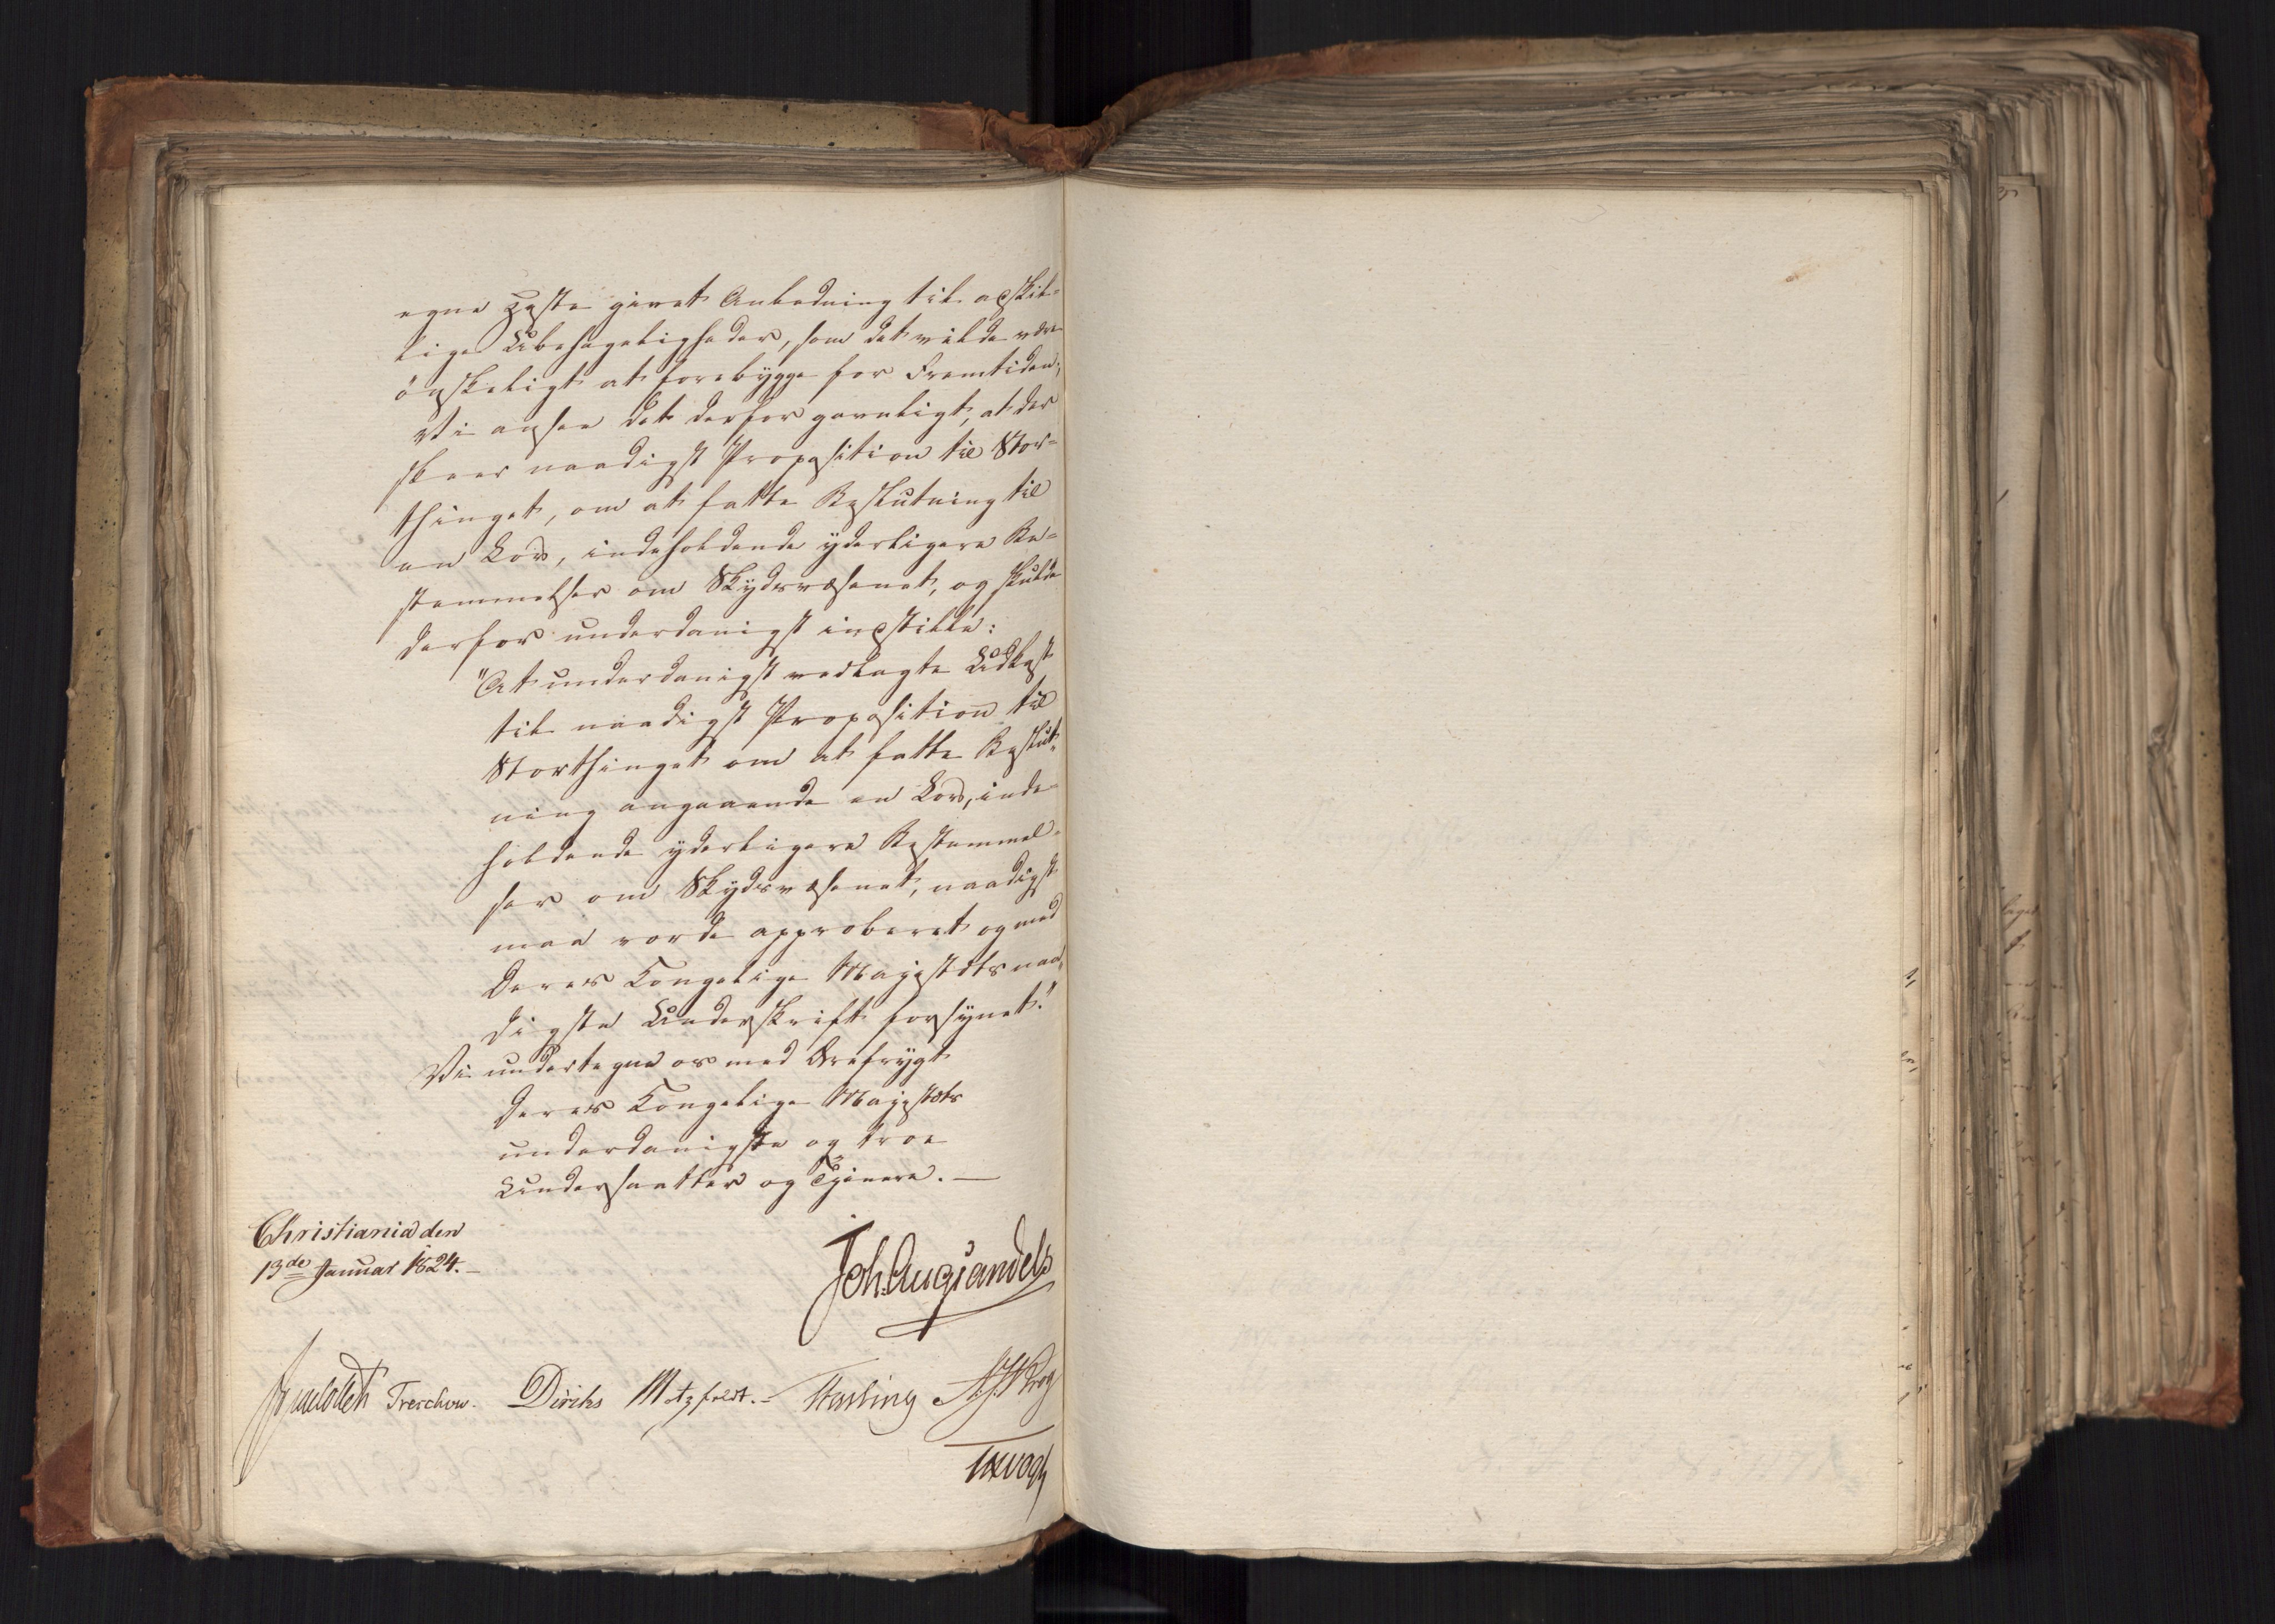 egne Heste givet Anledning til adskil=
lige Ubehageligheder, som det vilde være
ønskeligt at forebygge for Fremtiden;
Vi ansee det derfor gavnligt, at der
skeer naadigst Proposition til Stor=
thinget, om at fatte Beslutning til
en Lov, indeholdende yderligere Be=
stemmelser om Skydsvæsenet, og skulde
derfor underdanigst indstille:
"At underdanigst vedlagte Udkast
til naadigst Proposition til
Storthinget om at fatte Beslut=
ning angaaende en Lov, inde=
holdende yderligere Bestemmel=
ser om Skydsvæsenet, naadigst
maa vorde approberet og med
Deres Kongelige Majestæts naa=
digste Underskrift forsynet."
Vi undertegne os med Ærefrygt
Deres Kongelige Majestæts
underdanigste og troe
Undersaatter og Tjenere. —
Christiania den
13de Januar 1824. —
Joh: Aug: Sandels
Treschow. Diriks Motzfeldt. — Fasting